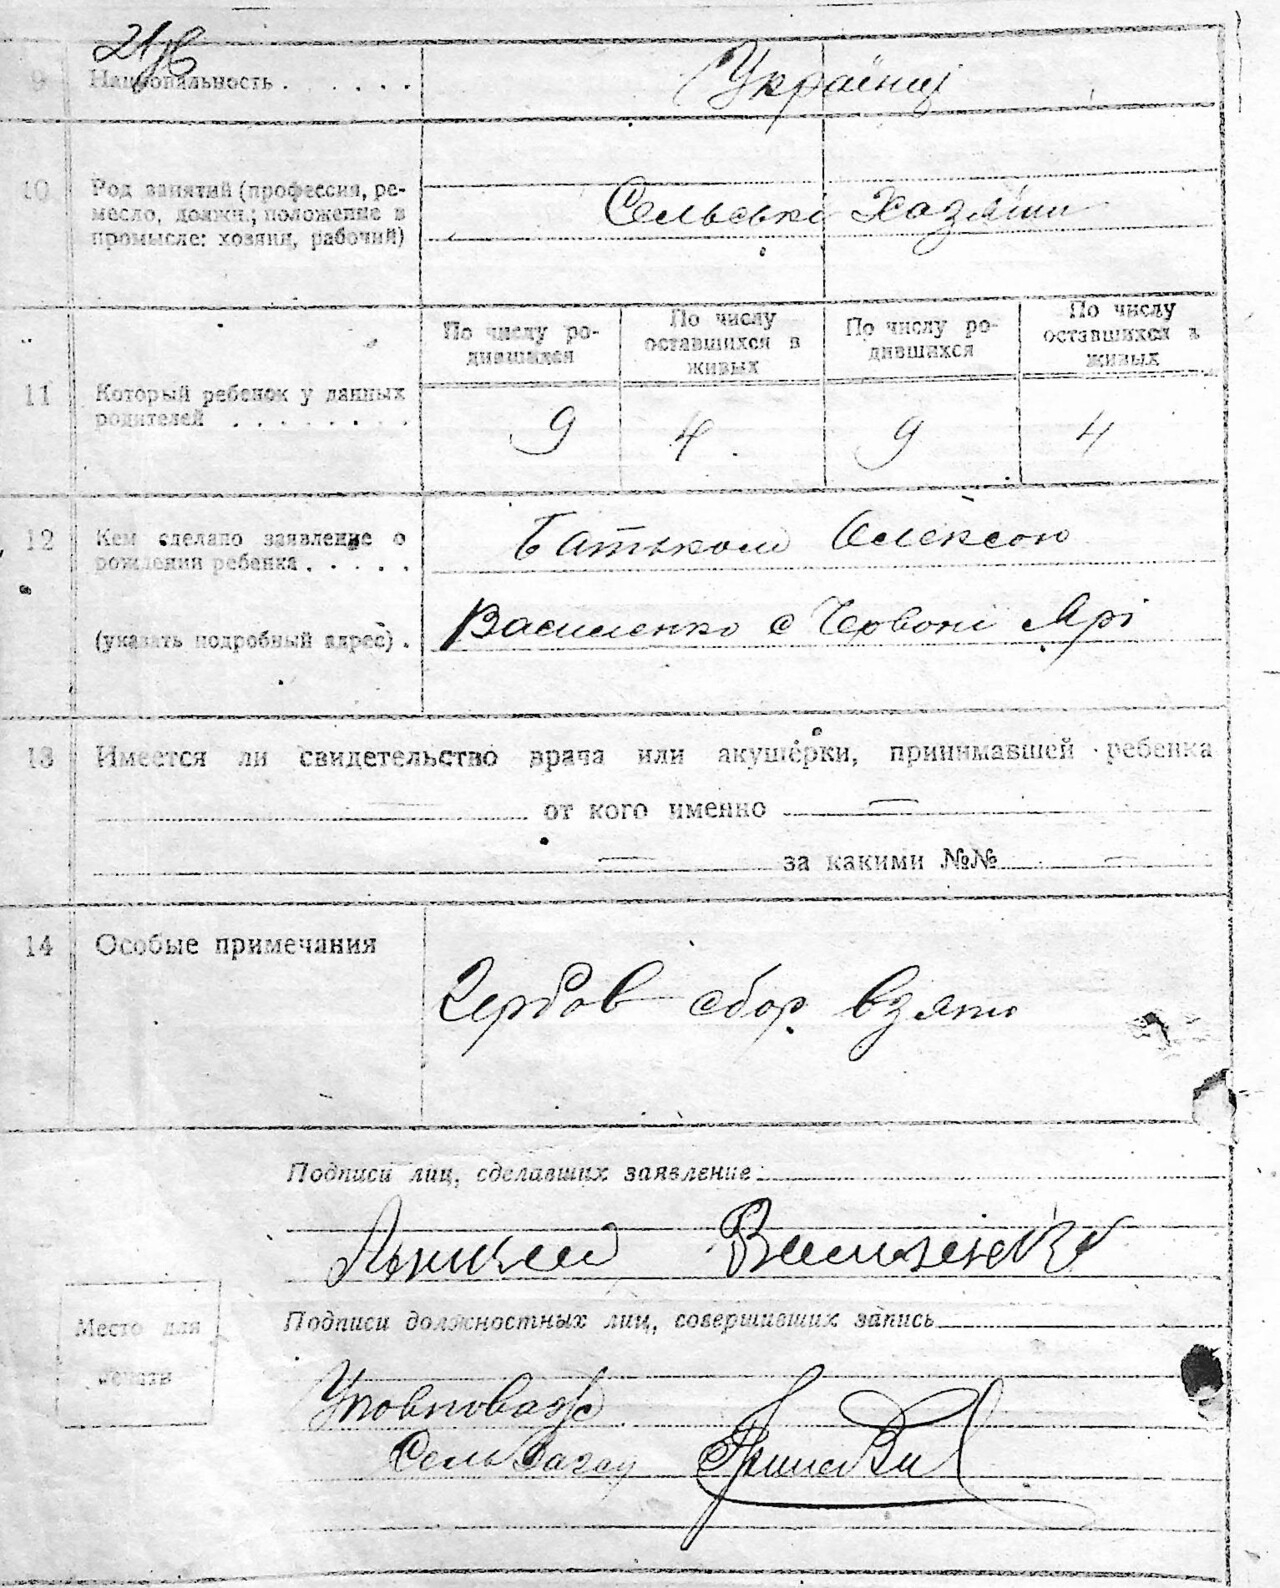 21/6
9 Национальность . . . . . . Українці
10 Род занятий (профессия, ре-
месло, должн.; положение в
промысле: хозяин, рабочий)
Сельські Хазяіни
По числу ро-
дившихся
По числу
оставшихся в
живых
По числу ро-
дившихся
По числу
оставшихся в
живых
11 Который ребенок у данных
родителей . . . . . . . .
9 4 9 4
12 Кем сделано заявление о
рождении ребенка . . . . .
Батьком Олексою
(указать подробный адрес) .
Василенко с Червоні Ярі
13 Имеется ли свидетельство врача или акушёрки, принимавшей ребенка
— от кого именно —
— за какими №№ —
14 Особые примечания
Гербов сбор взято
Подписи лиц, сделавших заявление
Василенко
Подписи должностных лиц, совершивших запись
Место для
печати
Уповноваж